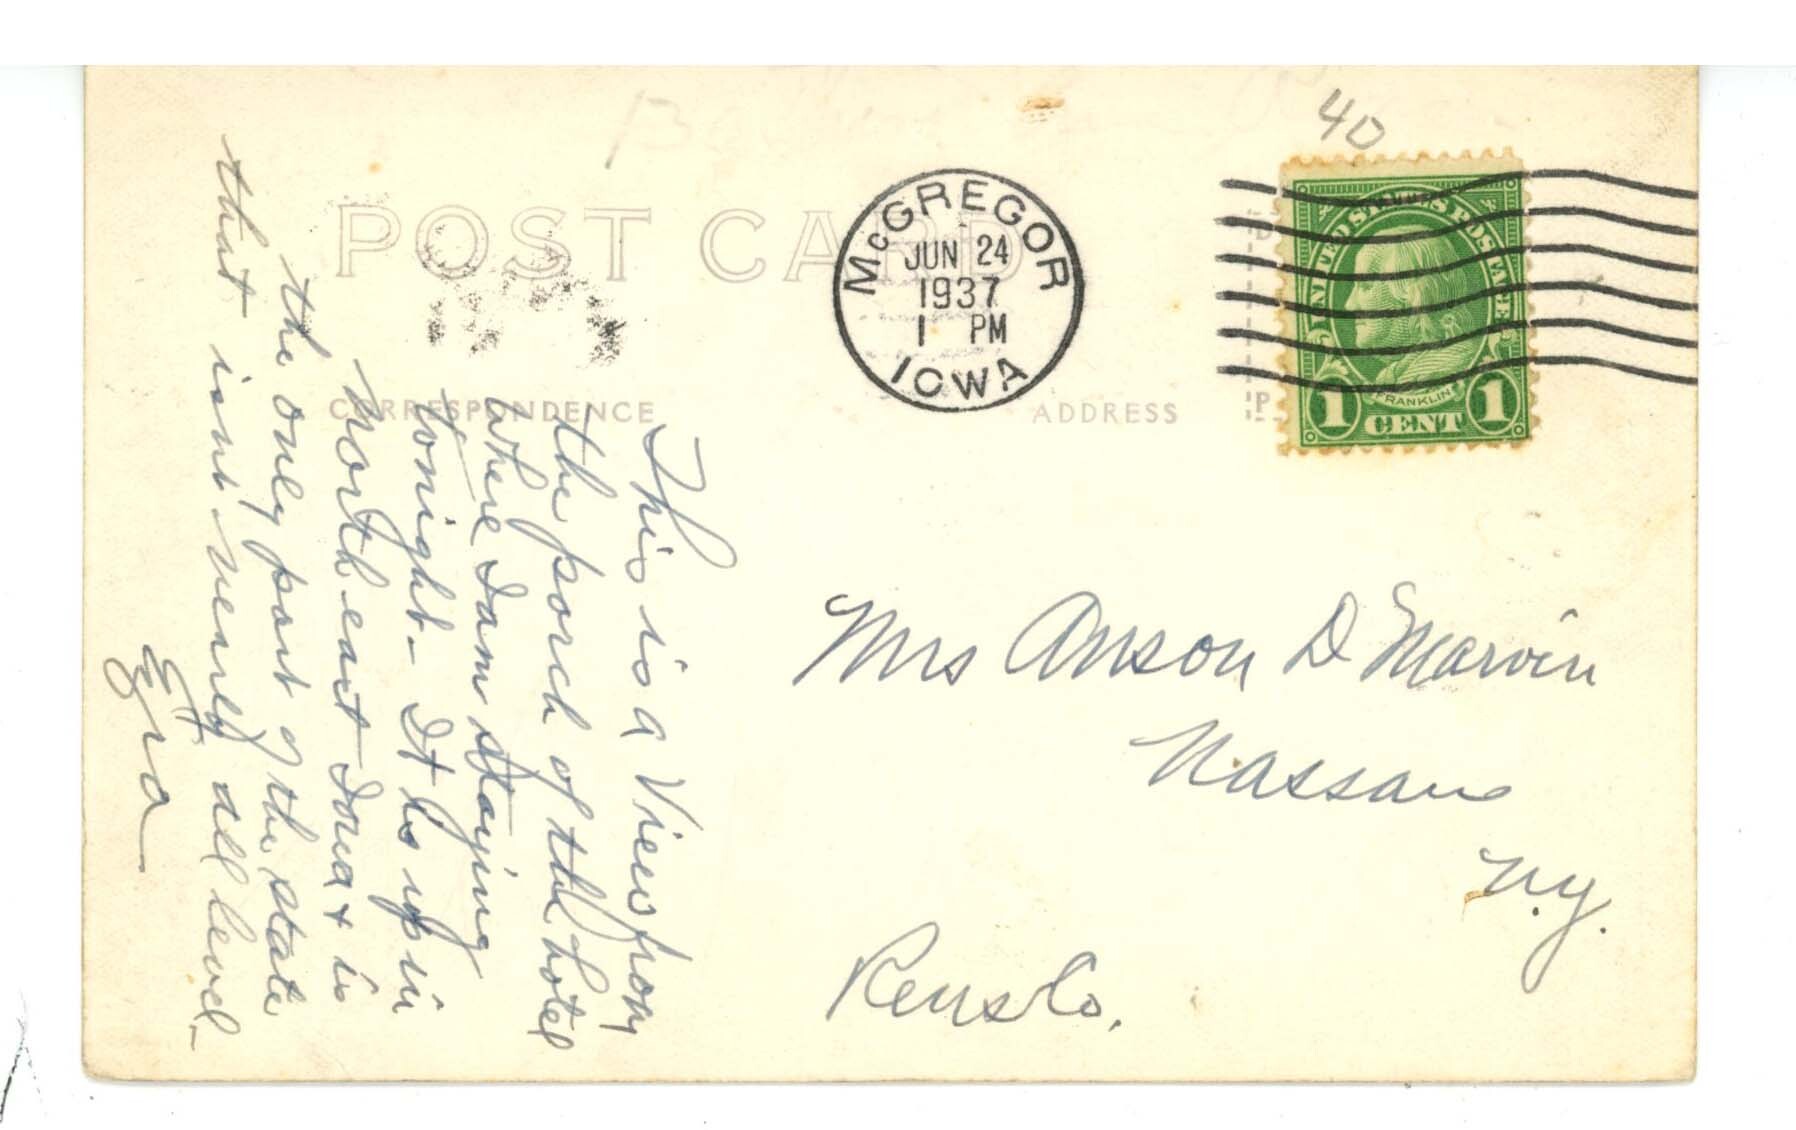 40
POST CARD
McGREGOR
JUN 24
1937
1 PM
IOWA
UNITED STATES POSTAGE
FRANKLIN
1 CENT 1
CORRESPONDENCE
ADDRESS
P
This is a View from
the porch of the hotel
where I am staying
tonight - It is up in
North east Iowa + is
the only part of the state
that isnt verry all level -
Ezra
Mrs Anson D Marvin
Nassau
N.Y.
Rens Co.